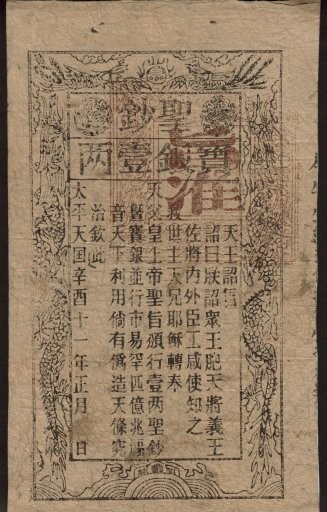 聖鈔
寶銀壹两
旨准
天王詔旨
詔曰朕詔眾王肥天將義王
佐將內外臣工咸使知之
救世主天兄耶穌轉奉
天父皇上帝聖旨頒行壹两聖鈔
暨寶銀並行市易罕匹億兆福
音天下利用倘有僞造天條究
治欽此
太平天囯辛酉十一年正月 日